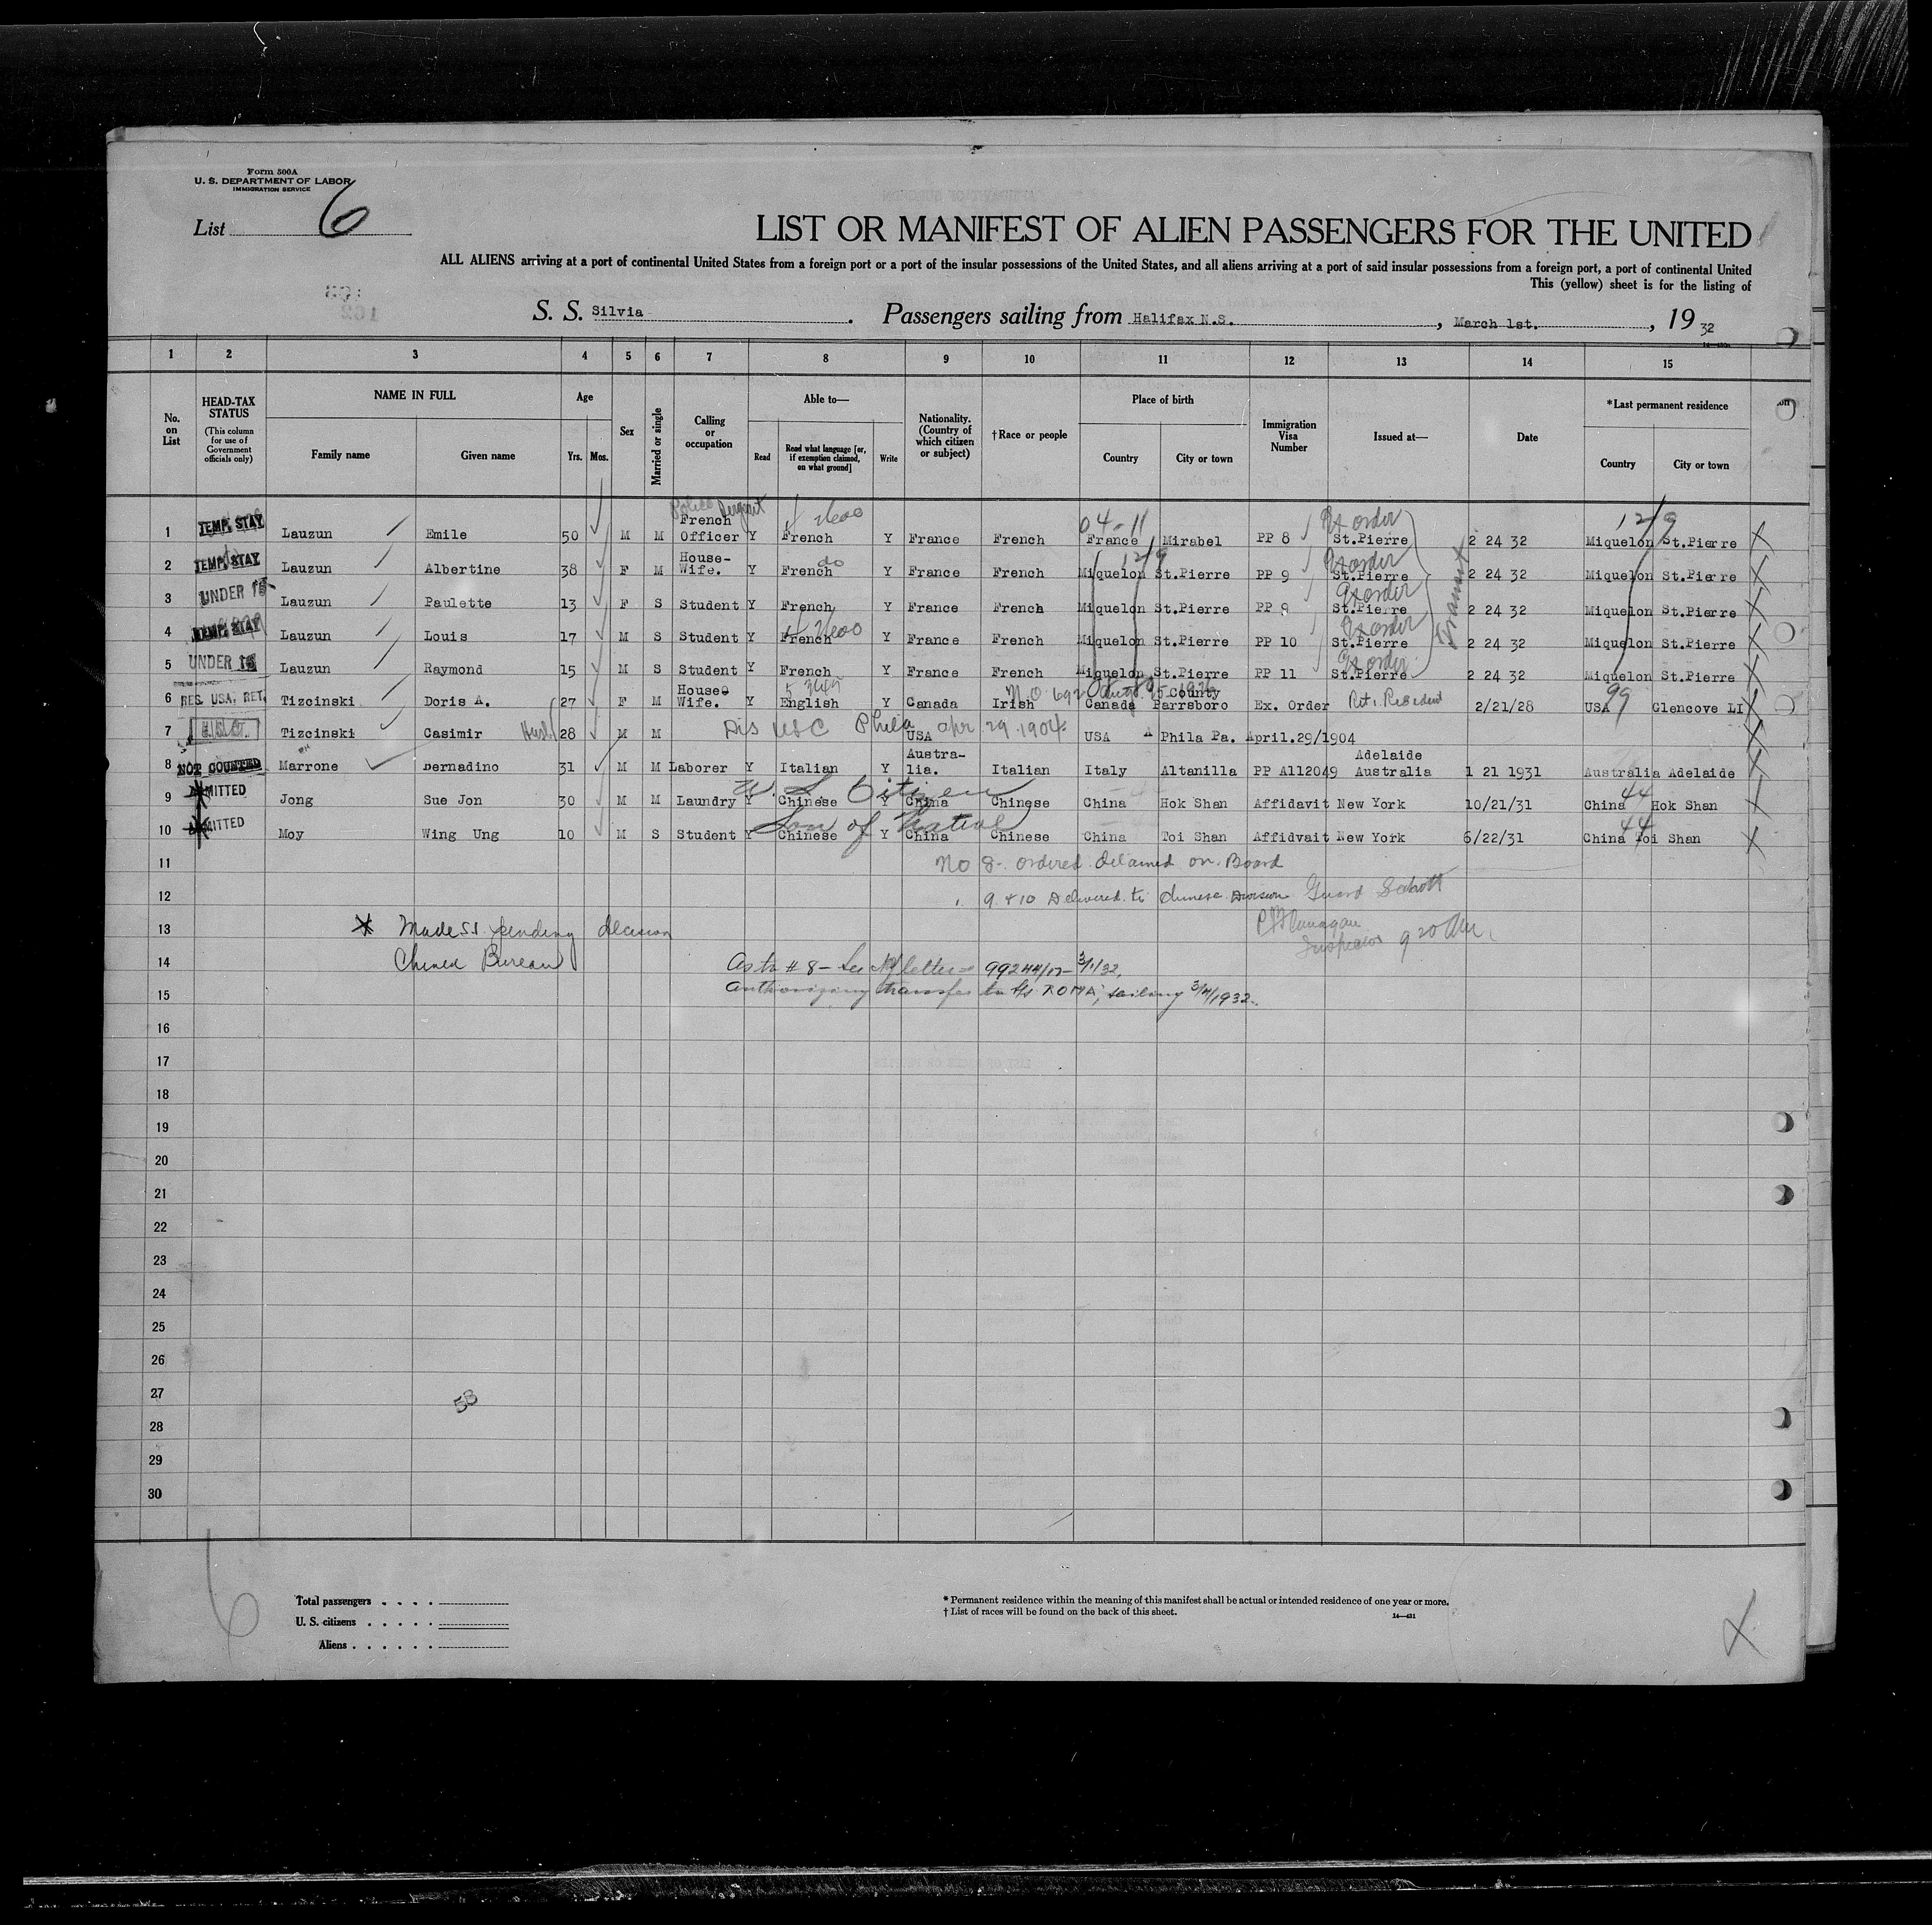 Form 500A
U. S. DEPARTMENT OF LABOR
IMMIGRATION SERVICE
List 6
LIST OR MANIFEST OF ALIEN PASSENGERS FOR THE UNITED
ALL ALIENS arriving at a port of continental United States from a foreign port or a port of the insular possessions of the United States, and all aliens arriving at a port of said insular possessions from a foreign port, a port of continental United
This (yellow) sheet is for the listing of
S. S. Silvia. Passengers sailing from Halifax N.S., March 1st., 19 32
1 2 3 4 5 6 7 8 9 10 11 12 13 14 15
No. on List
HEAD-TAX STATUS (This column for use of Government officials only)
NAME IN FULL
Family name Given name
Age
Yrs. Mos.
Sex
Married or single
Calling or occupation
Able to—
Read Read what language [or, if exemption claimed, on what ground] Write
Nationality. (Country of which citizen or subject)
†Race or people
Place of birth
Country City or town
Immigration Visa Number
Issued at—
Date
*Last permanent residence
Country City or town
Police Sergeant 04-11 Ex order 12/9
1 TEMP. STAY Lauzun Emile 50 M M French Officer Y French Y France French France Mirabel PP 8 St.Pierre 2 24 32 Miquelon St.Pierre X
do 12/9 Ex order
2 TEMP. STAY Lauzun Albertine 38 F M House-Wife. Y French Y France French Miquelon St.Pierre PP 9 St.Pierre 2 24 32 Miquelon St.Pierre X
Ex order Transit
3 UNDER 16 Lauzun Paulette 13 F S Student Y French Y France French Miquelon St.Pierre PP 9 St.Pierre 2 24 32 Miquelon St.Pierre X
Ex order
4 TEMP. STAY Lauzun Louis 17 M S Student Y French Y France French Miquelon St.Pierre PP 10 St.Pierre 2 24 32 Miquelon St.Pierre X
Ex order
5 UNDER 16 Lauzun Raymond 15 M S Student Y French Y France French Miquelon St.Pierre PP 11 St.Pierre 2 24 32 Miquelon St.Pierre X
6 RES. USA. RET. Tizcinski Doris A. 27 F M House Wife. Y English Y Canada Irish Canada Parrsboro County Ex. Order Ret. Resident 2/21/28 USA 99 Glencove LI X
7 U.S.C. Tizcinski Casimir Husb. 28 M M Dis USC Phila Apr 29. 1904. USA USA Phila Pa. April.29/1904 X
8 NOT COUNTED Marrone Bernadino 31 M M Laborer Y Italian Y Austra-lia. Italian Italy Altanilla PP A112049 Adelaide Australia 1 21 1931 Australia Adelaide X
U. S. Citizen
9 ADMITTED Jong Sue Jon 30 M M Laundry Y Chinese Y China Chinese China Hok Shan Affidavit New York 10/21/31 China 44 Hok Shan X
Son of Native
10 ADMITTED Moy Wing Ung 10 M S Student Y Chinese Y China Chinese China Toi Shan Affidvait New York 6/22/31 China 44 Toi Shan X
11 No 8. ordered detained on Board
12 9 & 10 Delivered to Chinese Division Guard
13 X Made SS pending decision Inspector 9 20 AM
14 Chinese Bureau As to # 8 - See NY letter 99244/17 - 3/1/32.
15 authorizing transfer to S/S ROMA, sailing 3/4/1932.
16
17
18
19
20
21
22
23
24
25
26
27
58
28
29
30
6
Total passengers
U. S. citizens
Aliens
* Permanent residence within the meaning of this manifest shall be actual or intended residence of one year or more.
† List of races will be found on the back of this sheet.
14—431
X